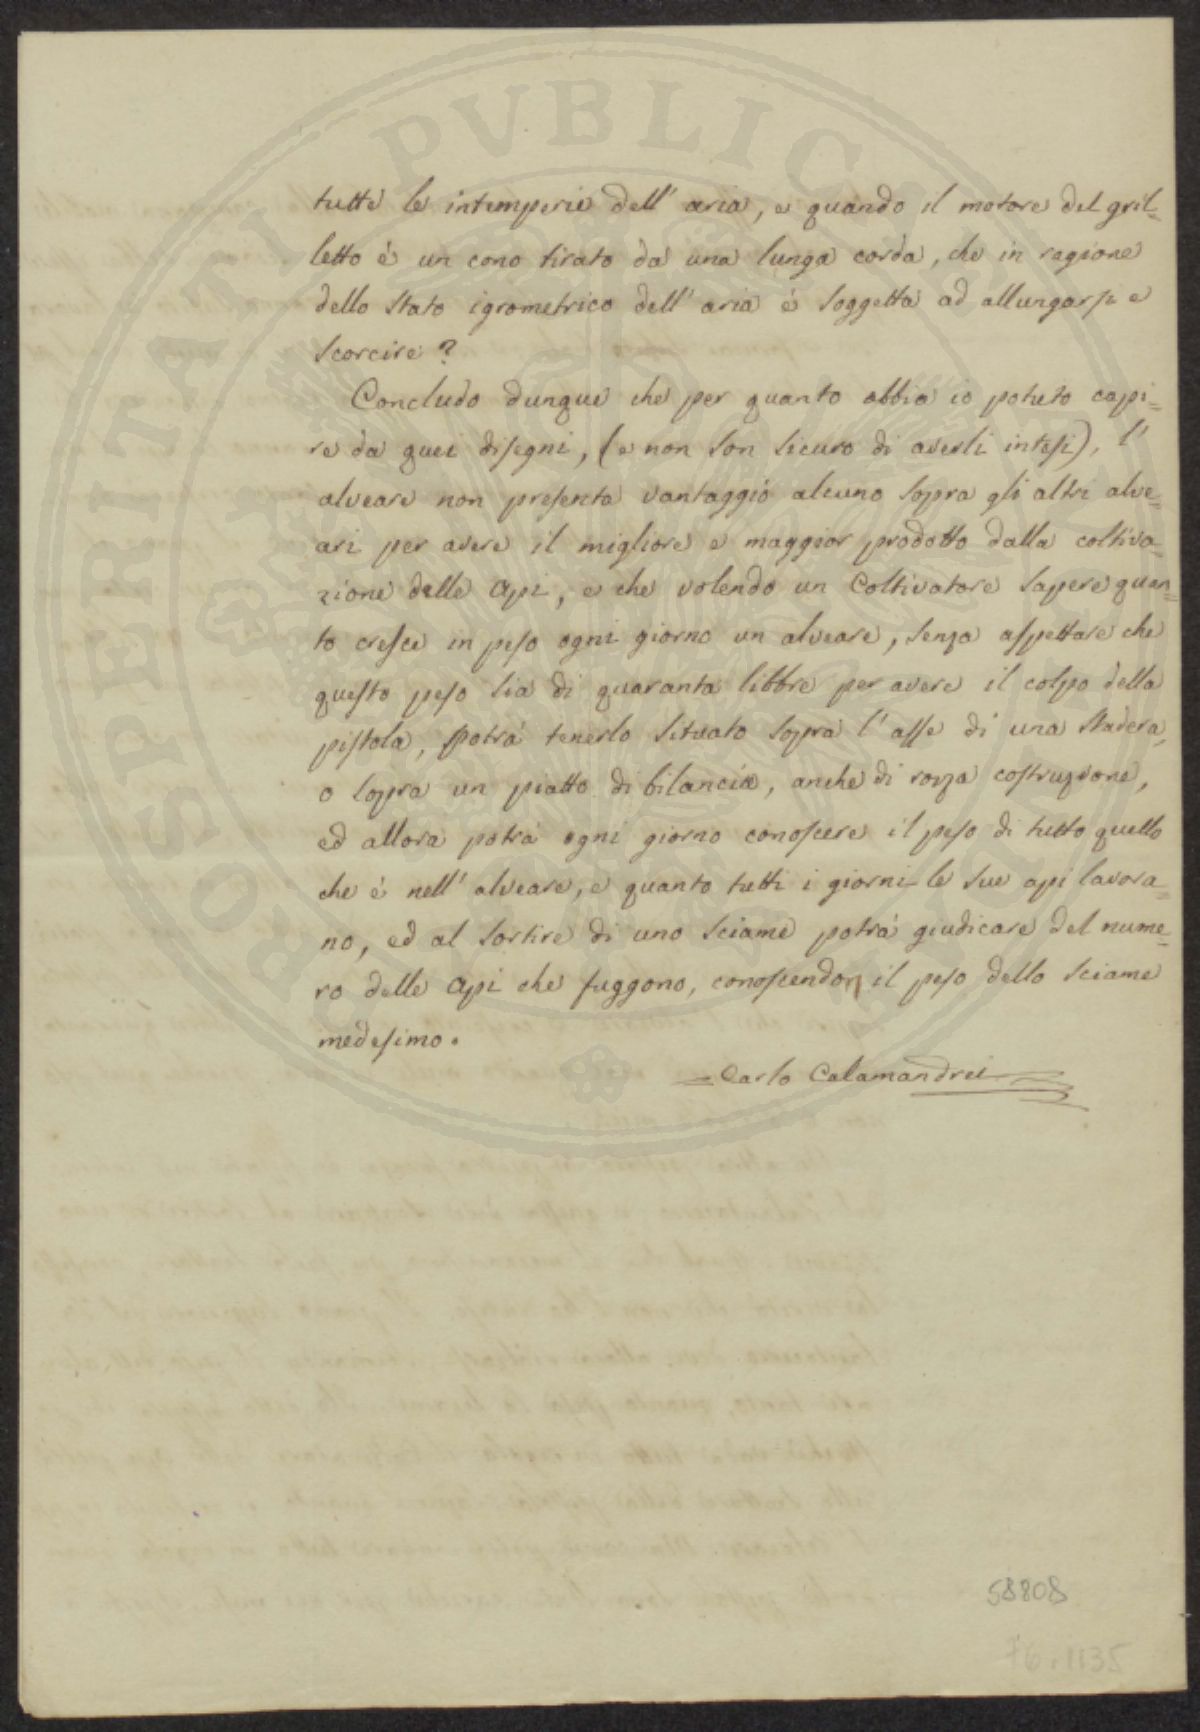 PROSPERITATI PUBLICAE AUGENDAE
tutte le intemperie dell' aria, e quando il motore del gril=
letto è un cono tirato da una lunga corda, che in ragione
dello stato igrometrico dell' aria è soggetta ad allungarsi e
scorcire?
Concludo dunque che per quanto abbia io potuto capi=
re da quei disegni, (e non son sicuro di averli intesi), l'
alveare non presenta vantaggio alcuno sopra gli altri alve=
ari per avere il migliore e maggior prodotto dalla coltiva=
zione delle Api, e che volendo un Coltivatore sapere quan=
to cresce in peso ogni giorno un alveare, senza aspettare che
questo peso sia di quaranta libbre per avere il colpo della
pistola, potrà tenerlo situato sopra l' asse di una stadera,
o sopra un piatto di bilancia, anche di rozza costruzione,
ed allora potrà ogni giorno conoscere il peso di tutto quello
che è nell' alveare, e quanto tutti i giorni le sue api lavora=
no, ed al sortire di uno sciame potrà giudicare del nume=
ro delle Api che fuggono, conoscendo il peso dello sciame
medesimo.
Carlo Calamandrei
58808
76.1135